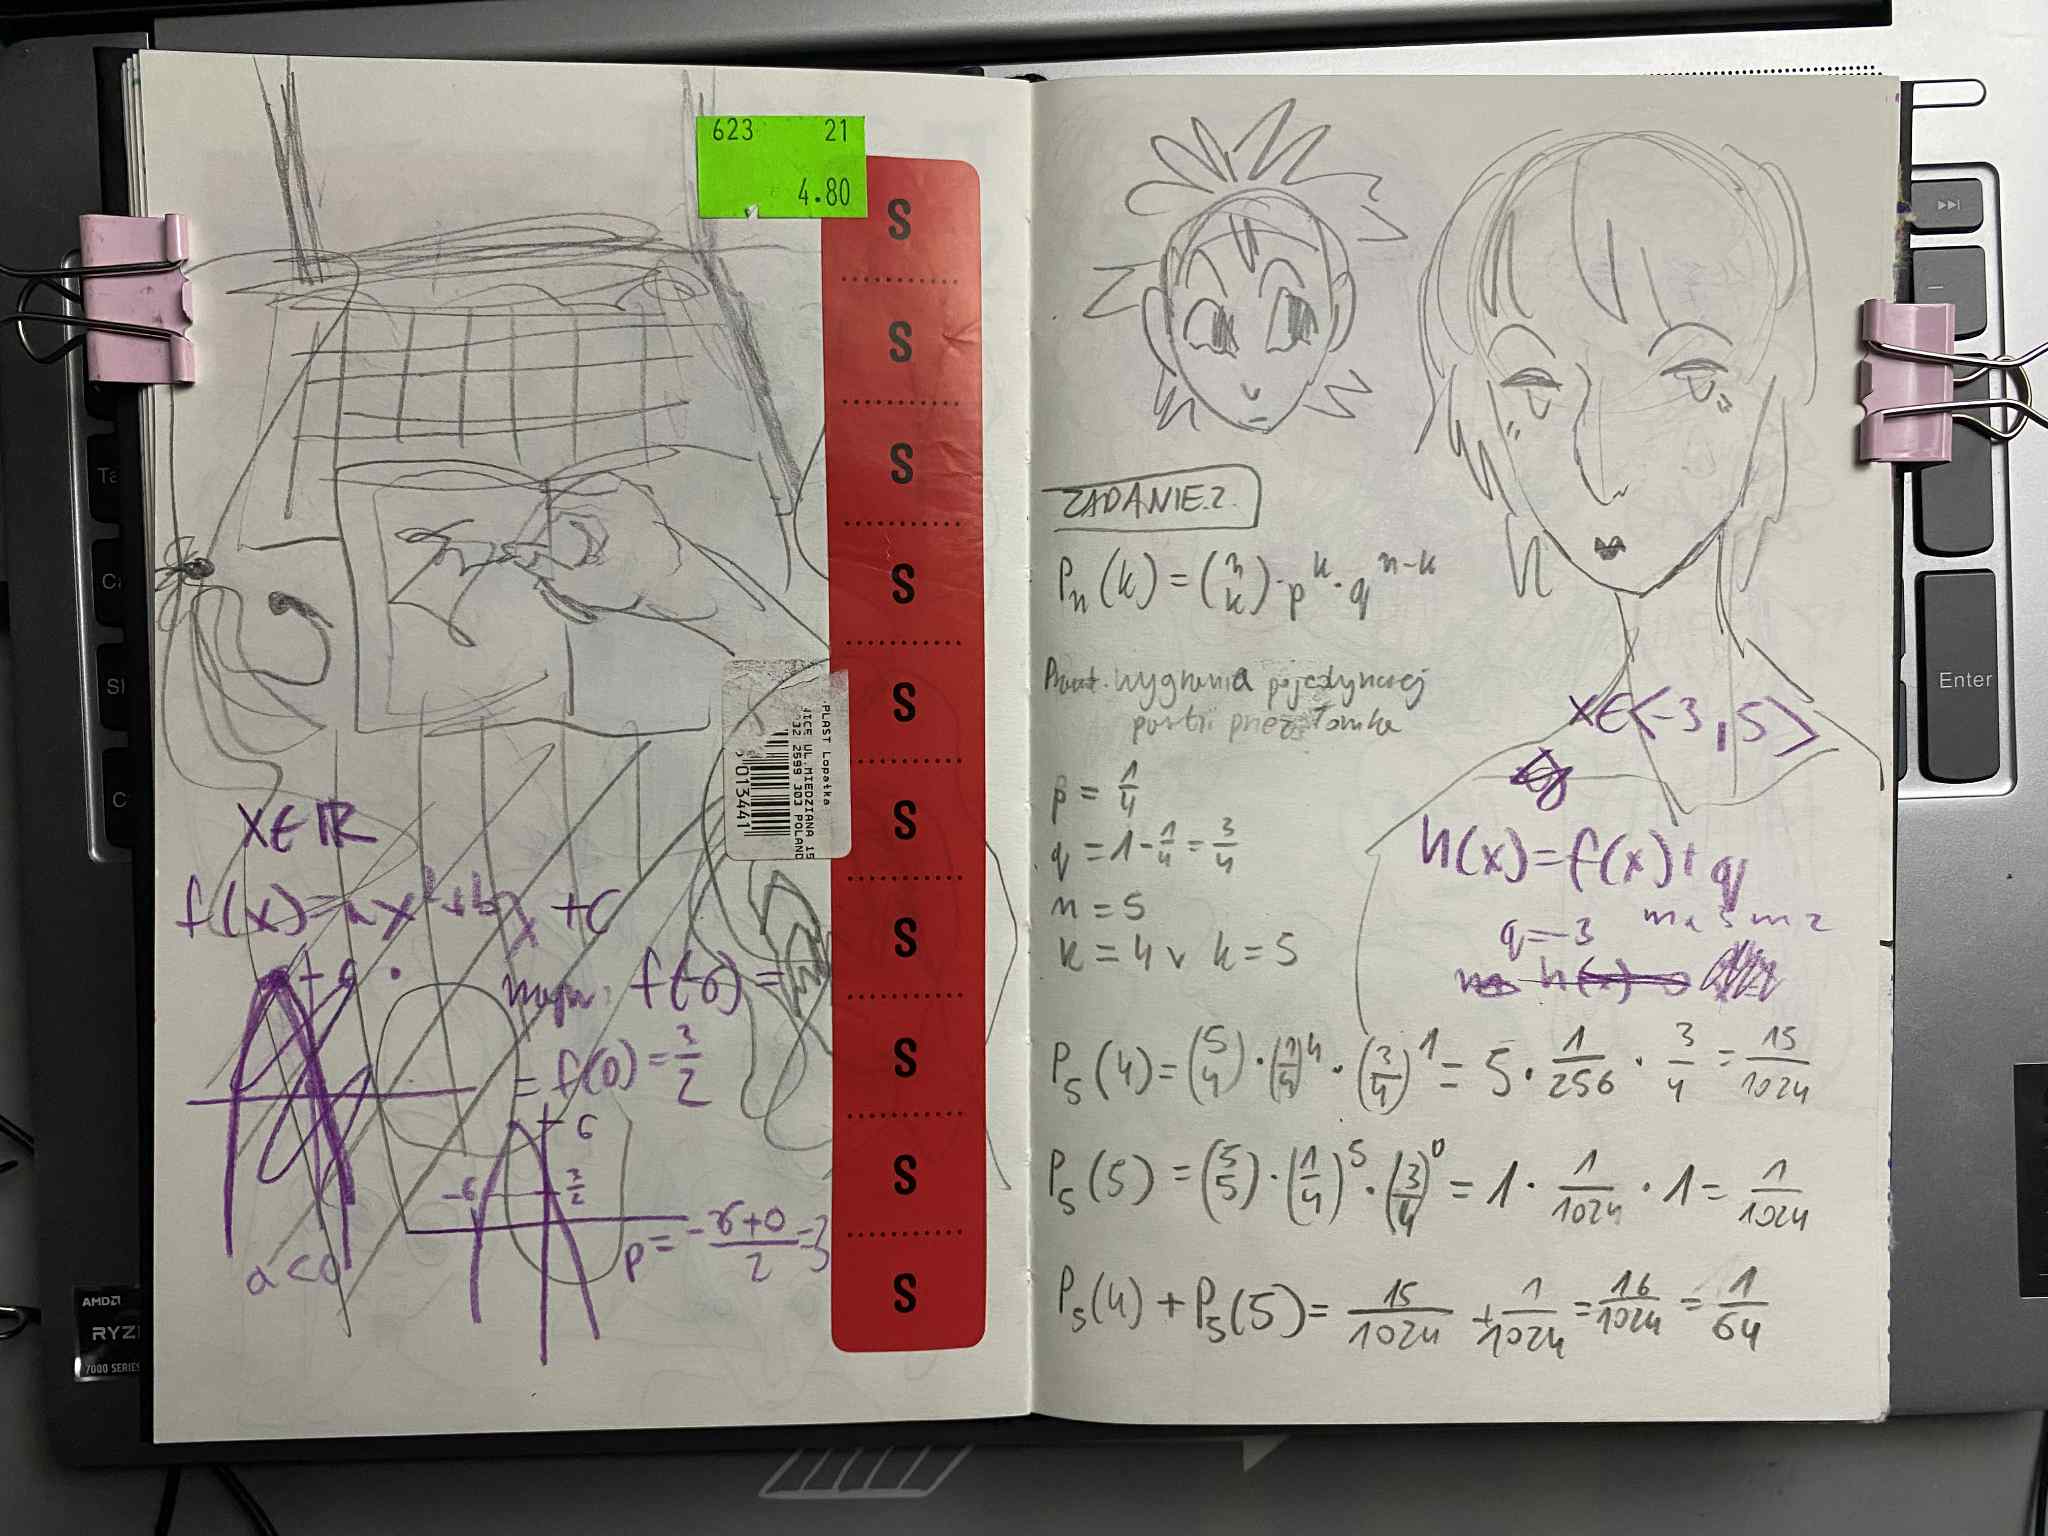 623 21
4.80
S
S
S
S
S
S
S
S
S
S
PLAST Lopatka
UL.MIEDZIANA 15
32 2599 303 POLAND
013441
x∈ℝ
f(x)=ax²+bx+c
+6
a<0
f(-6)=
=f(0)=3/2
6
3/2
-6
p=-6+0/2=-3
ZADANIE.2.
Pn(k)=(n k)·p^k·q^(n-k)
wygrania pojedynczej
partii przez Tomka
p=1/4
q=1-1/4=3/4
n=5
k=4 v k=5
x∈<-3,5>
h(x)=f(x)+q
q=-3
P5(4)=(5 4)·(1/4)^4·(3/4)^1=5·1/256·3/4=15/1024
P5(5)=(5 5)·(1/4)^5·(3/4)^0=1·1/1024·1=1/1024
P5(4)+P5(5)=15/1024+1/1024=16/1024=1/64
Enter
AMD
RYZ
7000 SERIES